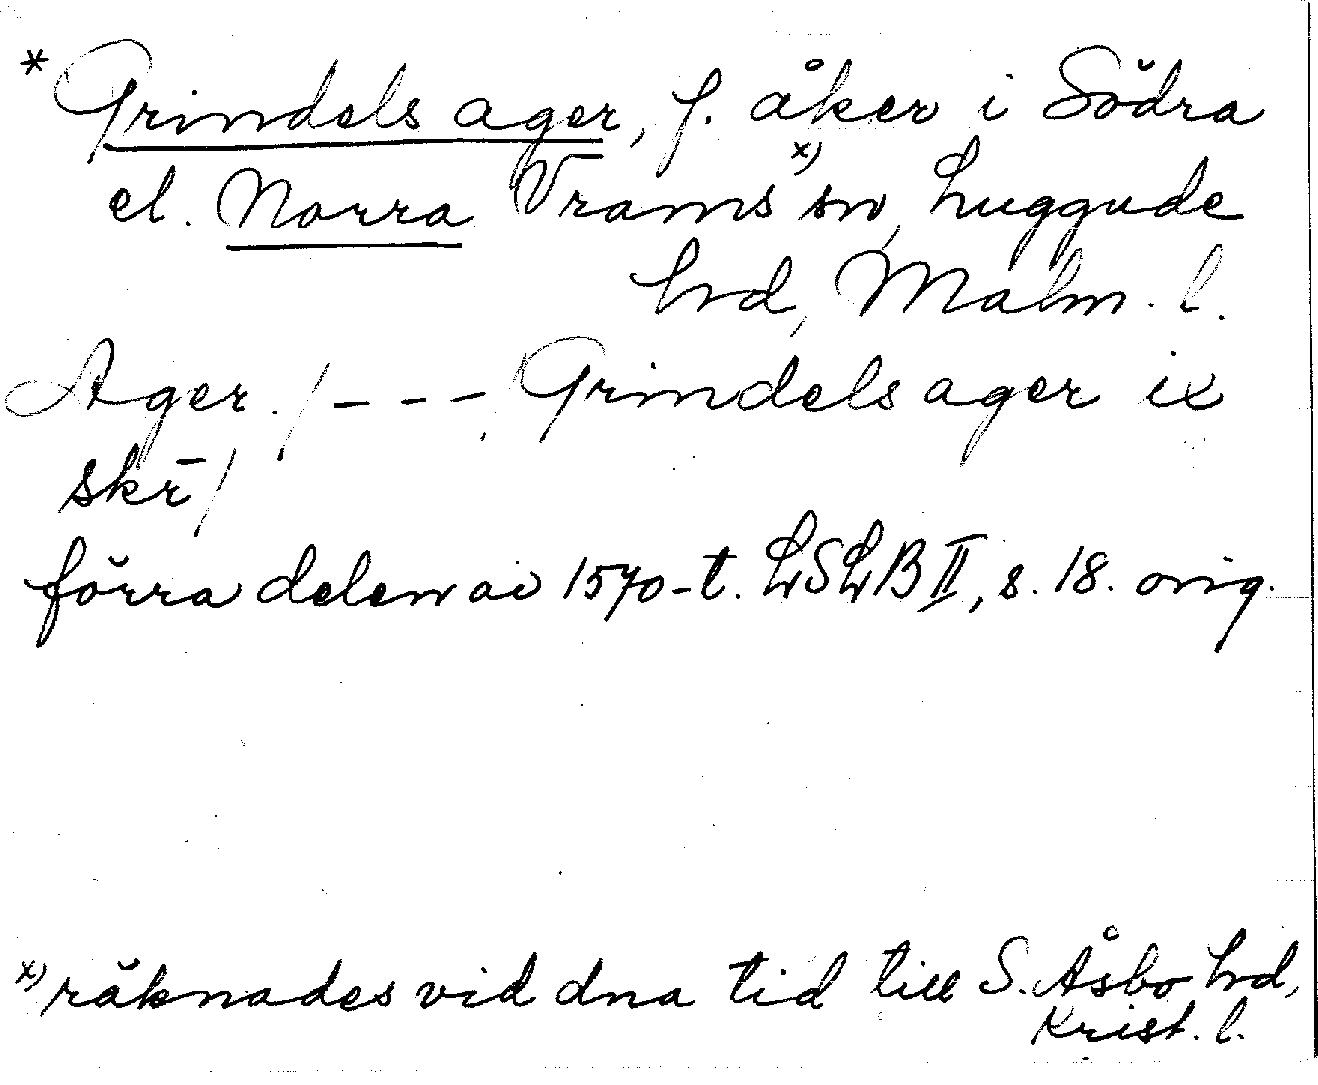 * Grindels ager, f. åker i Södra
el. Norra Vrams x) sn, Luggude
hd, Malm. l.
Ager. / - - - , Grindels ager ix
skr̄ /
förra delen av 1570-t. LSLB II, s. 18. orig.
x) räknades vid dna tid till S. Åsbo hd,
Krist. l.